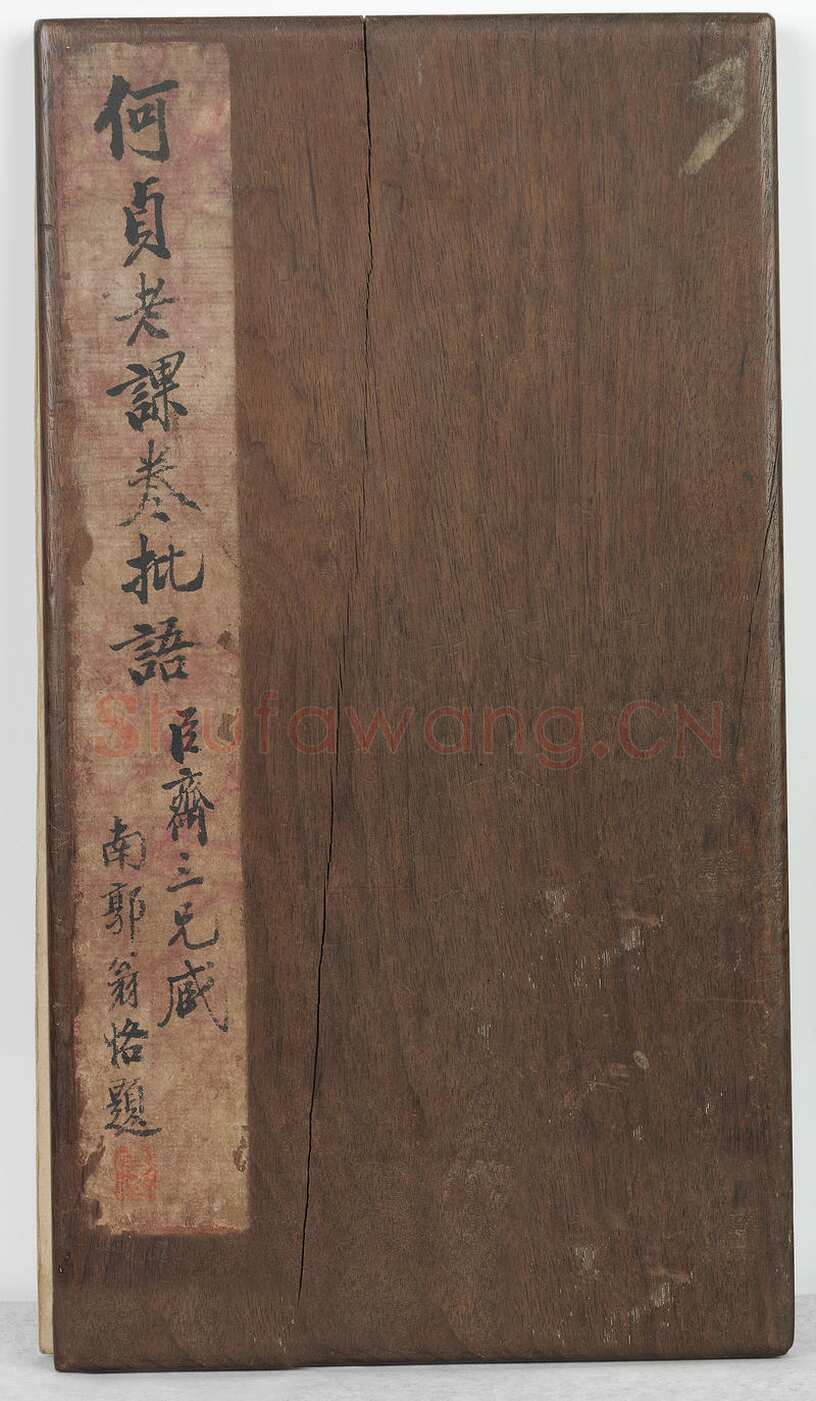 何貞老課卷批語
臣齋三兄藏
南郭翁恪題
Shufawang.CN